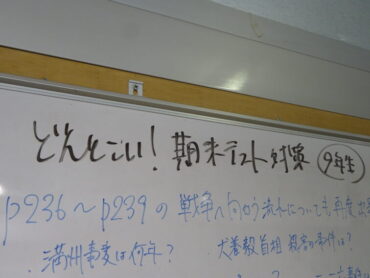 どんとこい！期末テスト対策 9年生
p236～p239の戦争へ向かう流れについても再度出
満州事変は何年？ 犬養毅首相 殺害の事件は？